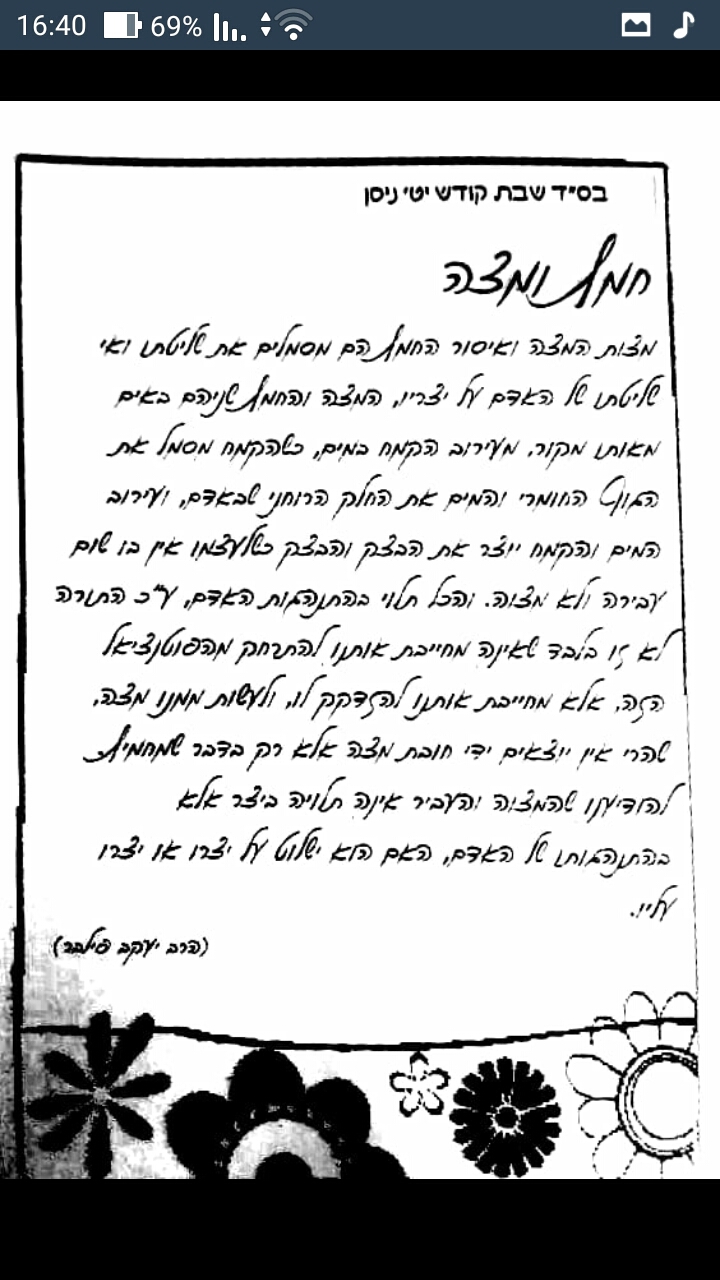 16:40 69%
בס״ד שבת קודש יט׳ ניסן
חמץ ומצה
מצות המצה ואיסור החמץ הם מסמלים את שליטתו ואי
שליטתו של האדם על יצריו, המצה והחמץ שניהם באים
מאותו מקור, מעירוב הקמח במים, כשהקמח מסמל את
הגוף החומרי והמים את החלק הרוחני שבאדם, ועירוב
המים והקמח יוצר את הבצק והבצק כשלעצמו אין בו שום
עבירה ולא מצוה. והכל תלוי בהתנהגות האדם, ע״כ התורה
לא זו בלבד שאינה מחייבת אותנו להתרחק מהפוטנציאל
הזה, אלא מחייבת אותנו להזדקק לו, ולעשות ממנו מצה,
שהרי אין יוצאים ידי חובת מצה אלא רק בדבר שמחמיץ
להודיענו שהמצוה והעביר אינה תלויה ביצר אלא
בהתנהגותו של האדם, האם הוא ישלוט על יצרו או יצרו
עליו.
(הרב יעקב פילבר)